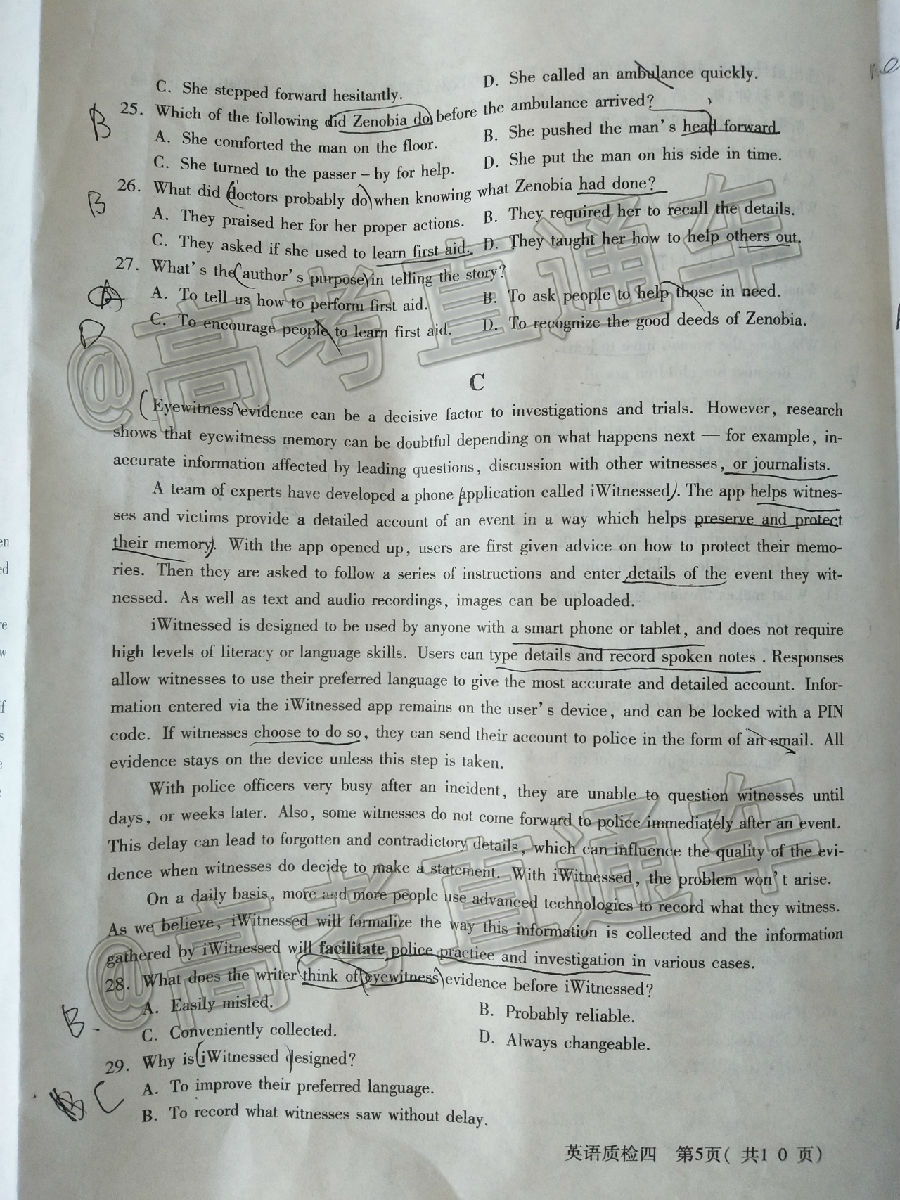 C. She stepped forward hesitantly. D. She called an ambulance quickly.
25. Which of the following did Zenobia do before the ambulance arrived?
B
A. She comforted the man on the floor. B. She pushed the man's head forward.
C. She turned to the passer-by for help. D. She put the man on his side in time.
26. What did doctors probably do when knowing what Zenobia had done?
B
A. They praised her for her proper actions. B. They required her to recall the details.
C. They asked if she used to learn first aid. D. They taught her how to help others out.
27. What's the author's purpose in telling the story?
A
A. To tell us how to perform first aid. B. To ask people to help those in need.
D
C. To encourage people to learn first aid. D. To recognize the good deeds of Zenobia.
@高考直通车
C
Eyewitness evidence can be a decisive factor to investigations and trials. However, research
shows that eyewitness memory can be doubtful depending on what happens next — for example, in-
accurate information affected by leading questions, discussion with other witnesses, or journalists.
A team of experts have developed a phone application called iWitnessed. The app helps witnes-
ses and victims provide a detailed account of an event in a way which helps preserve and protect
their memory. With the app opened up, users are first given advice on how to protect their memo-
ries. Then they are asked to follow a series of instructions and enter details of the event they wit-
nessed. As well as text and audio recordings, images can be uploaded.
iWitnessed is designed to be used by anyone with a smart phone or tablet, and does not require
high levels of literacy or language skills. Users can type details and record spoken notes. Responses
allow witnesses to use their preferred language to give the most accurate and detailed account. Infor-
mation entered via the iWitnessed app remains on the user's device, and can be locked with a PIN
code. If witnesses choose to do so, they can send their account to police in the form of an email. All
evidence stays on the device unless this step is taken.
With police officers very busy after an incident, they are unable to question witnesses until
days, or weeks later. Also, some witnesses do not come forward to police immediately after an event.
This delay can lead to forgotten and contradictory details, which can influence the quality of the evi-
dence when witnesses do decide to make a statement. With iWitnessed, the problem won't arise.
On a daily basis, more and more people use advanced technologies to record what they witness.
As we believe, iWitnessed will formalize the way this information is collected and the information
gathered by iWitnessed will facilitate police practice and investigation in various cases.
@高考直通车
28. What does the writer think of eyewitness evidence before iWitnessed?
B
A. Easily misled. B. Probably reliable.
C. Conveniently collected. D. Always changeable.
29. Why is iWitnessed designed?
C
A. To improve their preferred language.
B. To record what witnesses saw without delay.
英语质检四 第5页( 共1 0 页)